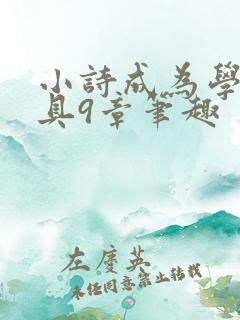 小詩成為學
具9章筆趣
左慶英
未经同意禁止转载